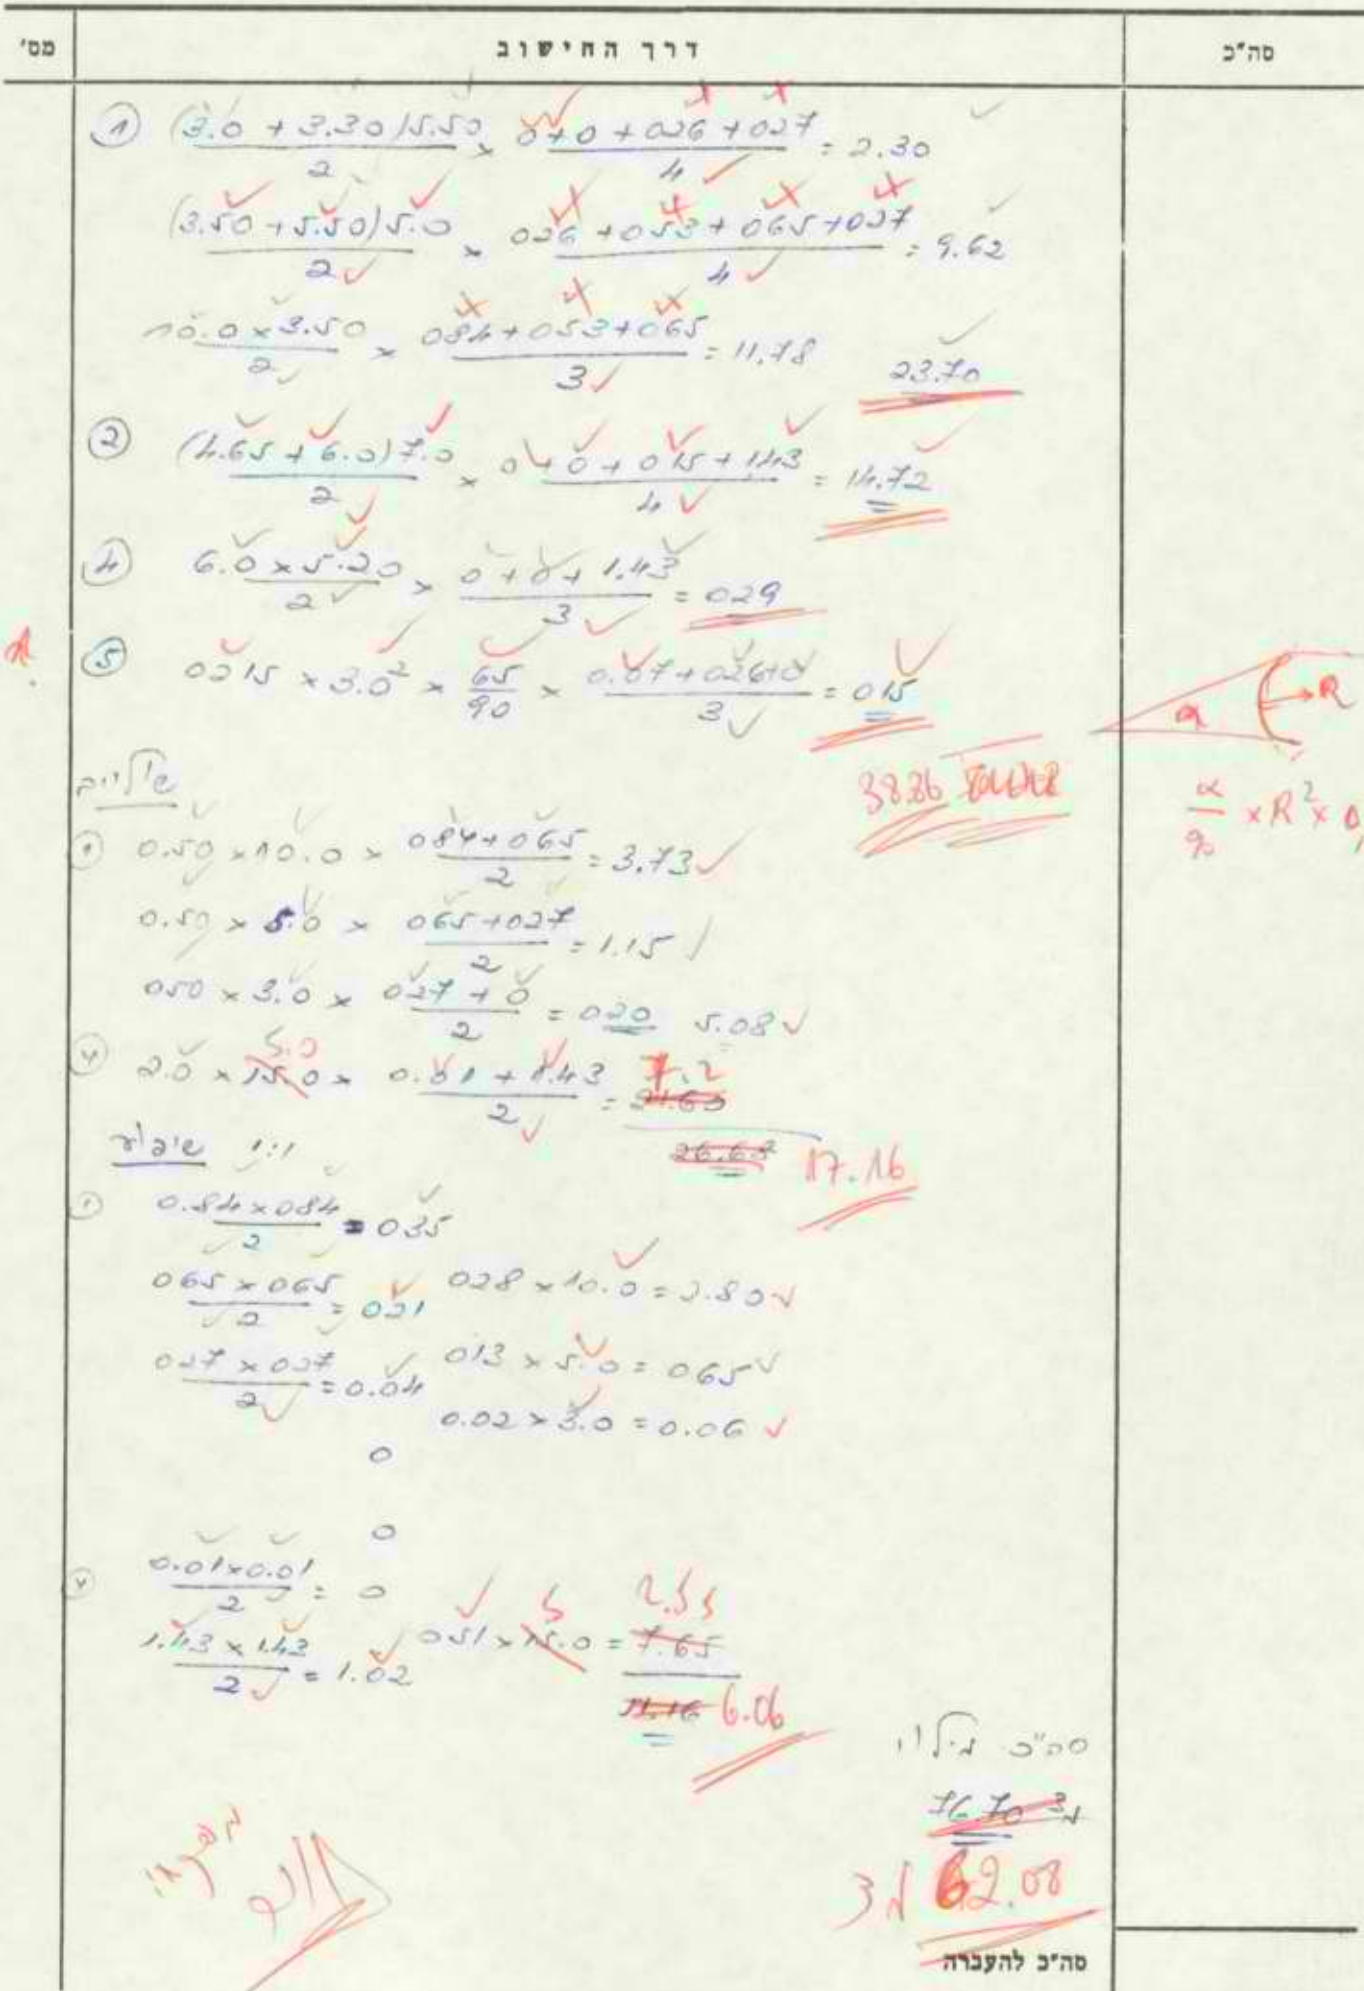 מס' דרך החישוב סה"כ
① (3.0 + 3.30)5.50 / 2 × 0+0+026+027 / 4 = 2.30
(3.50+5.50)5.0 / 2 × 026+053+065+027 / 4 = 9.62
10.0×3.50 / 2 × 084+053+065 / 3 = 11.78 23.70
② (4.65+6.0)7.0 / 2 × 0+0+015+143 / 4 = 14.72
④ 6.0×5.20 / 2 × 0+0+1.43 / 3 = 029
⑤ 0215 × 3.0² × 65 / 90 × 0.07+026+0 / 3 = 015
α R
38.86
α / 90 × R² × 0,
שוליים
① 0.50 × 10.0 × 084+065 / 2 = 3.73
0.50 × 5.0 × 065+027 / 2 = 1.15
050 × 3.0 × 027+0 / 2 = 020 5.08
5.0 7.2
④ 2.0 × 15.0 × 0.01+1.43 / 2 = 21.60
26.68 17.16
שיפוע 1:1
① 0.84×084 / 2 = 035
065×065 / 2 = 021 028 × 10.0 = 2.80
027×027 / 2 = 0.04 013 × 5.0 = 065
0.02 × 3.0 = 0.06
0
0
④ 0.01×0.01 / 2 = 0
5 2.55
1.43×1.43 / 2 = 1.02 051 × 15.0 = 7.65
11.16 6.06
סה"כ מילוי
76.70 מ3
62.08 מ3
סה"כ להעברה